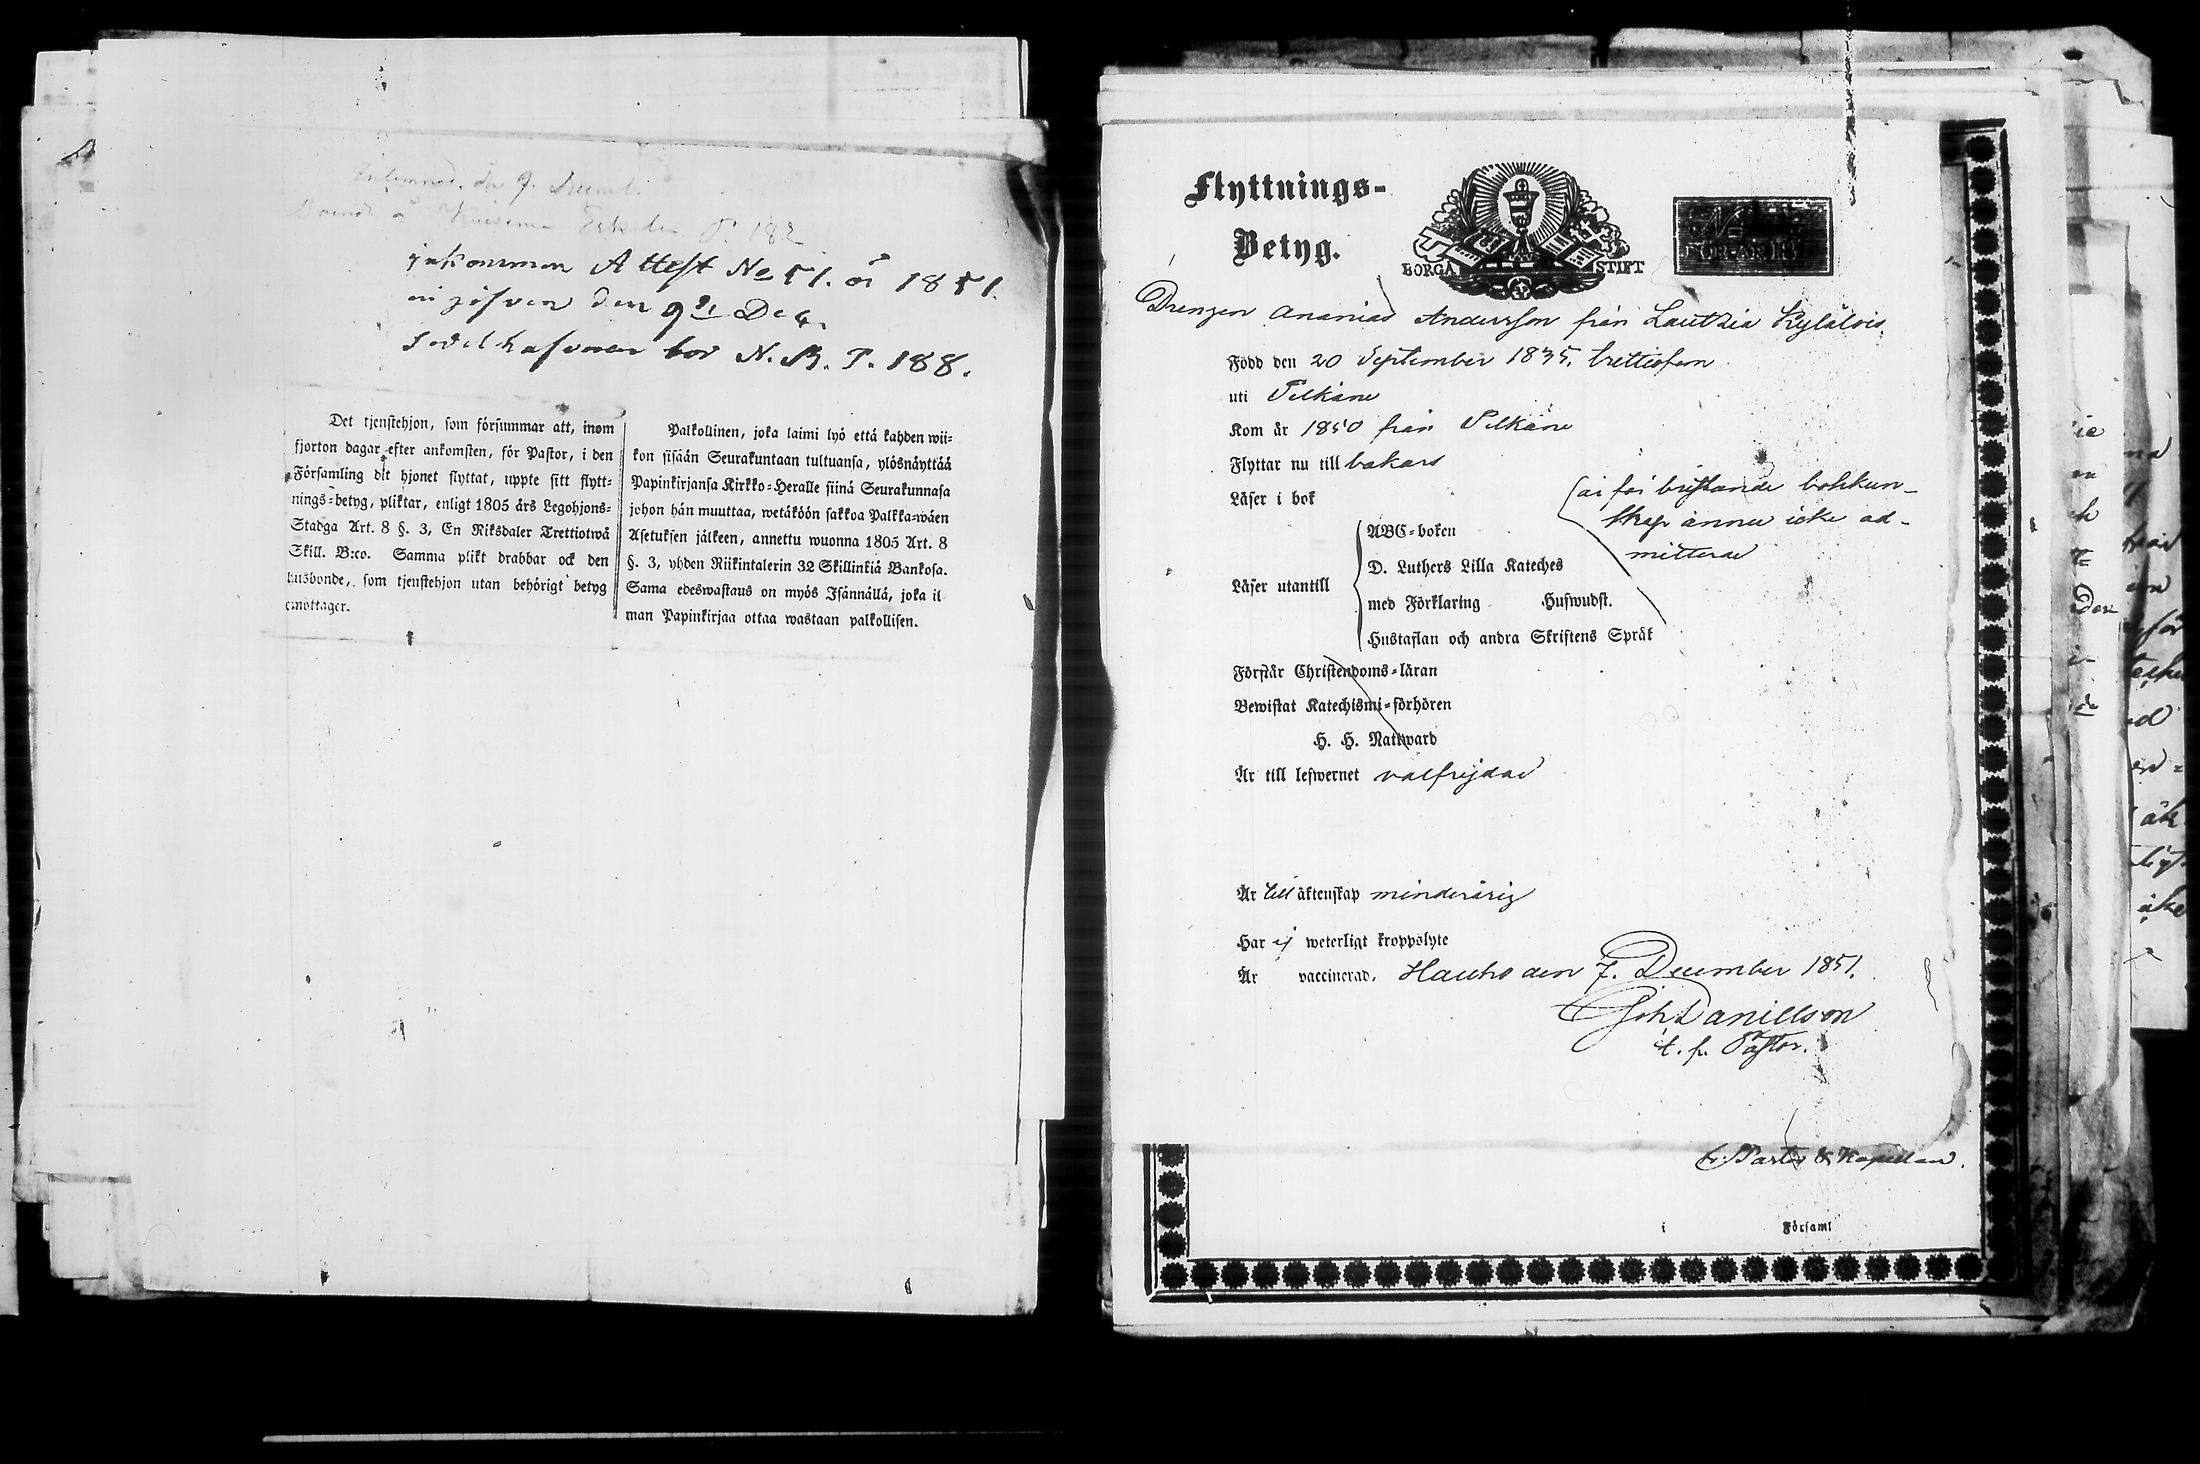 Inlemnad d. 9. Decemb.
Boende å
P. 182
inkommen Attest No 51. år 1851.
in gifven den 9de Dec.
sedelhafvaren bor N. B. P. 188.
Det tjenstehjon, som försummar att, inom
fjorton dagar efter ankomsten, för Pastor, i den
Församling dit hjonet flyttat, uppte sitt flytt-
nings-betyg, pliktar, enligt 1805 års Legohjons-
Stadga Art. 8 §. 3, En Riksdaler Trettiotwå
Skill. B:co. Samma plikt drabbar ock den
husbonde, som tjenstehjon utan behörigt betyg
emottager.
Palkollinen, joka laimi lyö että kahden wii-
kon sisään Seurakuntaan tultuansa, ylösnäyttää
Papinkirjansa Kirkko-Heralle siinä Seurakunnasa
johon hän muuttaa, wetäköön sakkoa Palkka-wäen
Asetuksen jälkeen, annettu wuonna 1805 Art. 8
§. 3, yhden Riikintalerin 32 Skillinkiä Bankosa.
Sama edeswastaus on myös Isännällä, joka il
man Papinkirjaa ottaa wastaan palkollisen.
Flyttnings-
Betyg.
BORGÅ STIFT
FÖR ÅR 18
Drengen Ananias Andersson från Lautsia Kylälois.
Född den 20 September 1835. trettiofem
uti Pelkäne
Kom år 1850 från Pelkäne
Flyttar nu till bakars
Läser i bok
är för bristande bokkun-
skap ännu icke ad-
mitterad
ABC-boken
D. Luthers Lilla Kateches
Läser utantill
med Förklaring Hufwudst.
Hustaflan och andra Skriftens Språk
Förstår Christendoms-läran
Bewistat Katechismi-förhören
H. H. Nattward
Är till lefwernet välfrejdad
Är till äktenskap minderårig
Har ej weterligt kroppslyte
Är vaccinerad. Hauho den 7. December 1851.
Joh Daniellson
t. f. Pastor.
Pastor & Kapellan.
i Församl